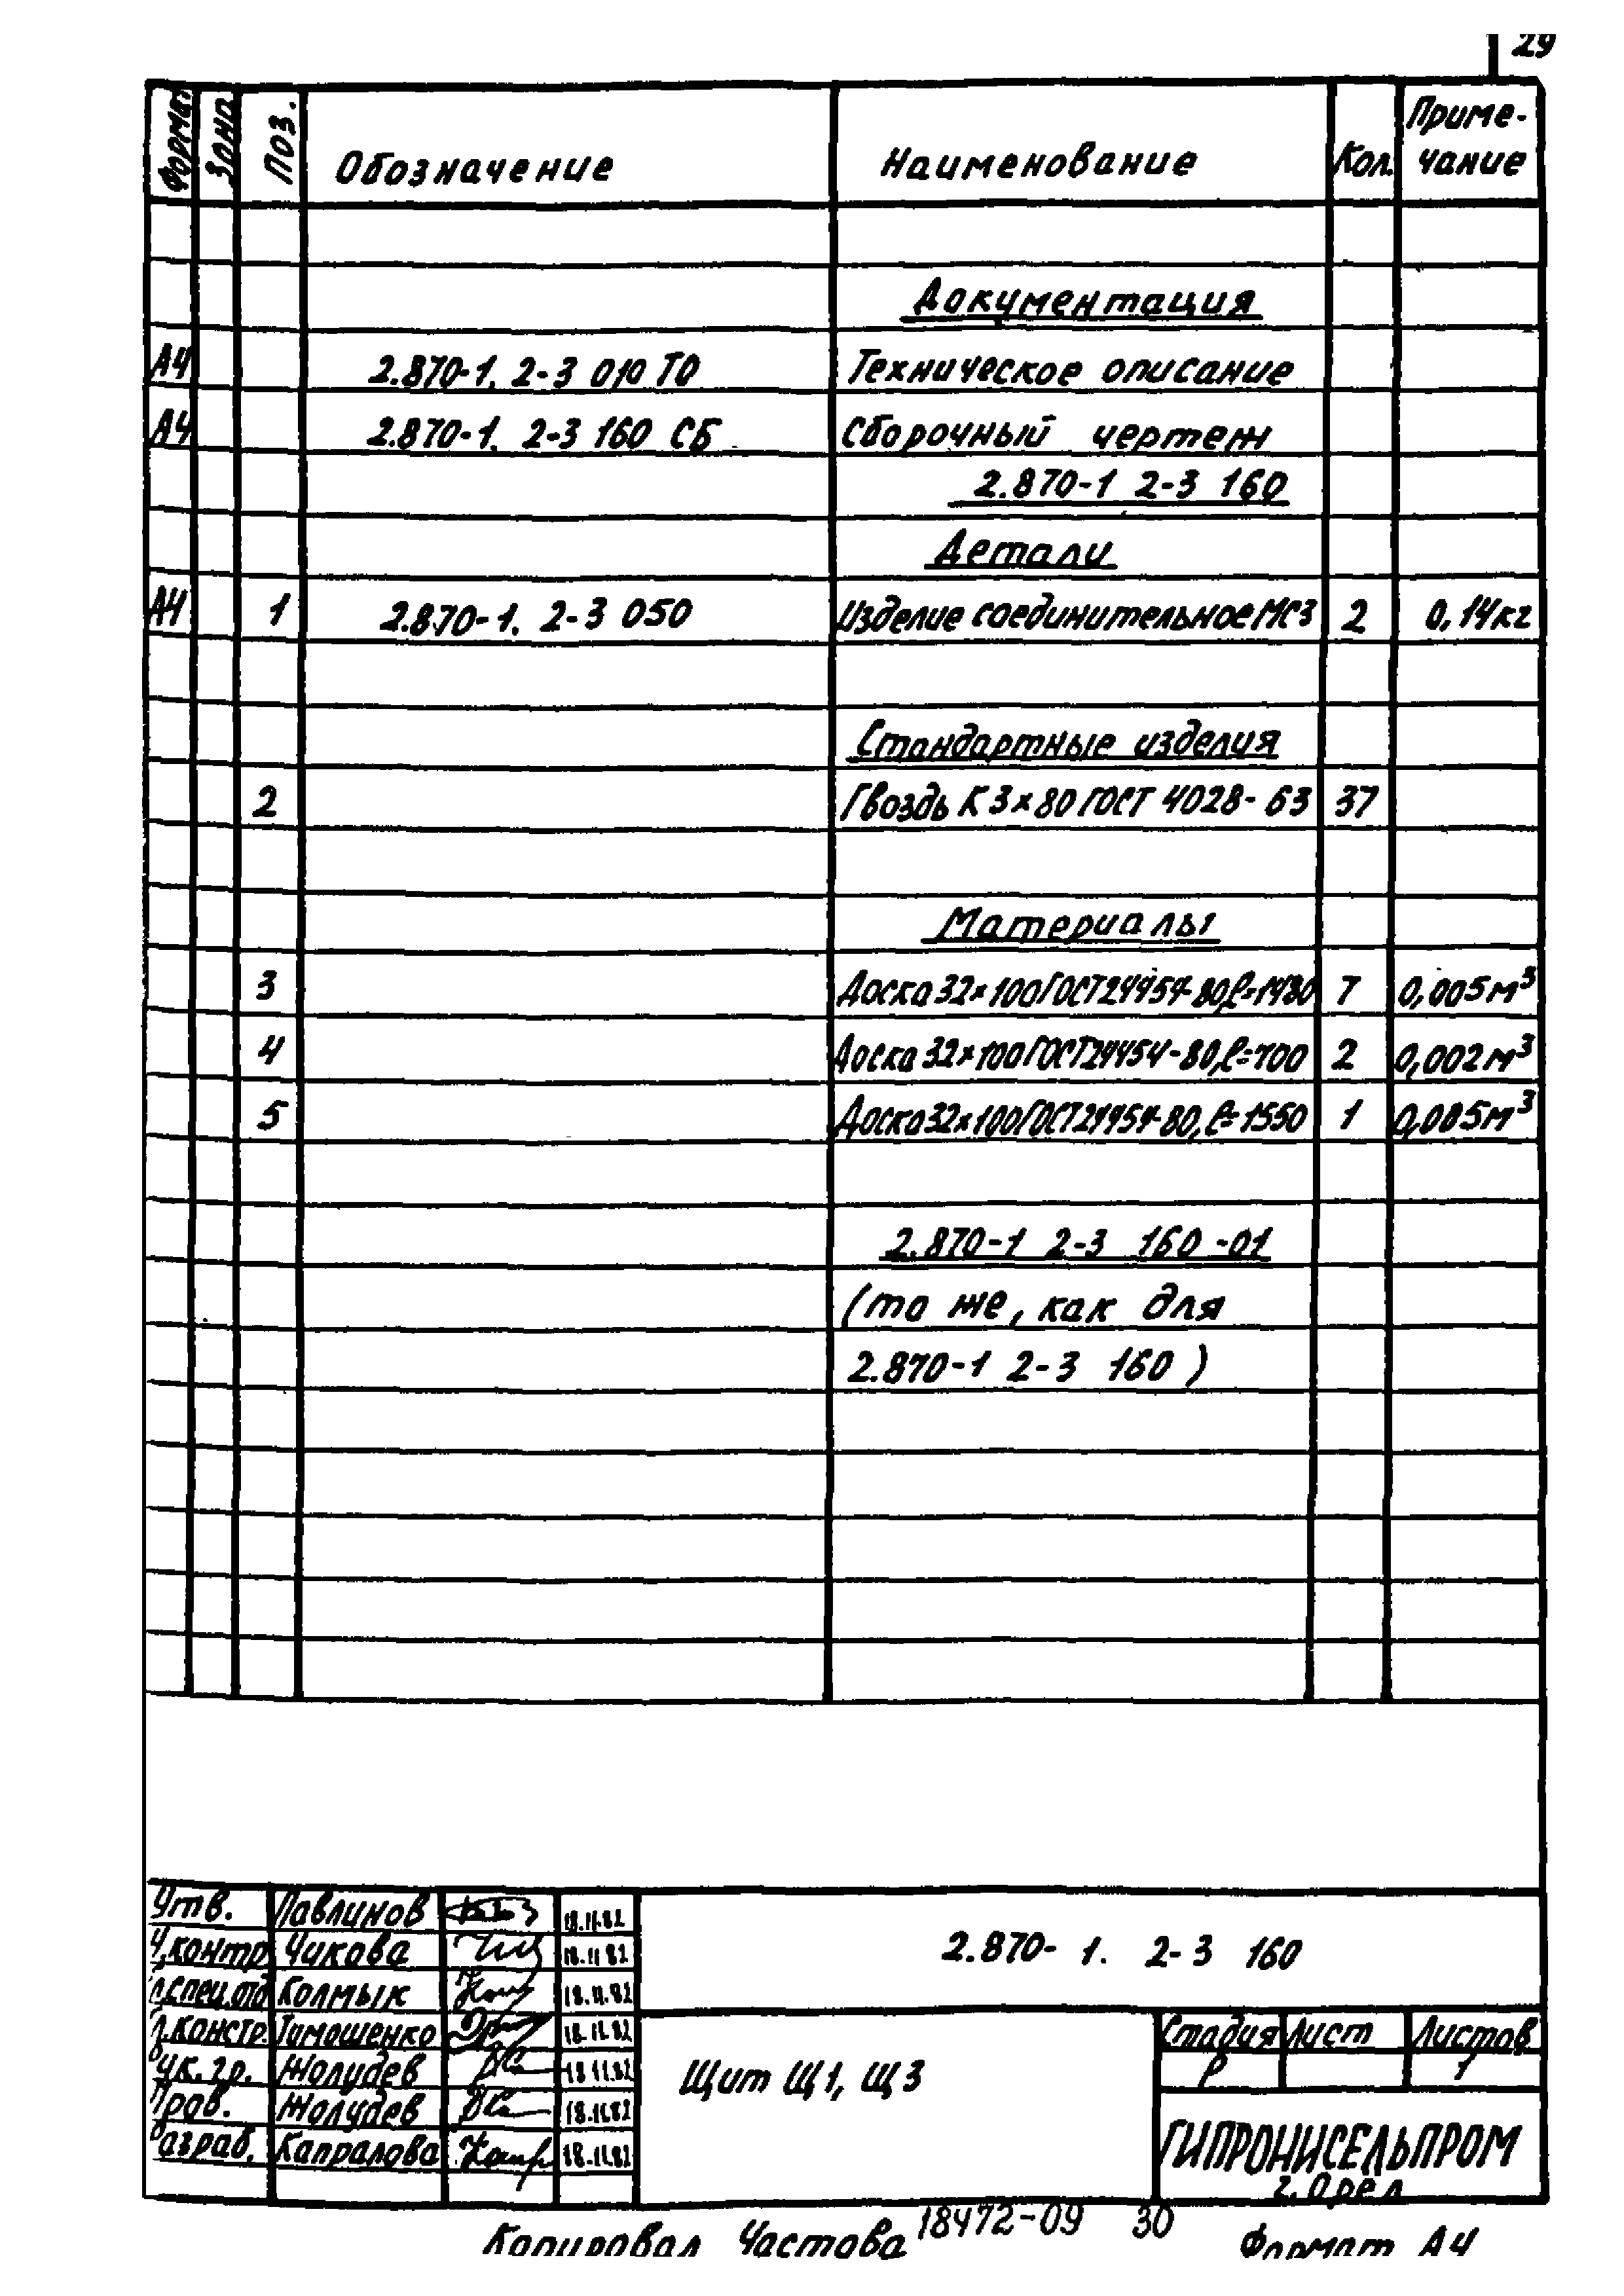 29
Формат Зона Поз. Обозначение Наименование Кол. Приме-
чание
Документация
А4 2.870-1. 2-3 010 ТО Техническое описание
А4 2.870-1. 2-3 160 СБ Сборочный чертеж
2.870-1 2-3 160
Детали
А4 1 2.870-1. 2-3 050 Изделие соединительное МС3 2 0,14кг
Стандартные изделия
2 Гвоздь К 3×80 ГОСТ 4028-63 37
Материалы
3 Доска 32×100 ГОСТ 24454-80, ℓ=1480 7 0,005м³
4 Доска 32×100 ГОСТ 24454-80, ℓ=700 2 0,002м³
5 Доска 32×100 ГОСТ 24454-80, ℓ=1550 1 0,005м³
2.870-1 2-3 160-01
(то же, как для
2.870-1 2-3 160)
Утв. Павлинов 18.11.82
Н.контр. Чикова 18.11.82
Гл.спец.отд Колмык 18.11.82
Гл.констр. Тимошенко 18.11.82
Рук.гр. Жолудев 18.11.82
Пров. Жолудев 18.11.82
Разраб. Капралова 18.11.82
2.870-1. 2-3 160
Щит Щ1, Щ3
Стадия Лист Листов
Р 1
ГИПРОНИСЕЛЬПРОМ
г. Орел
Копировал Частова 18472-09 30 Формат А4